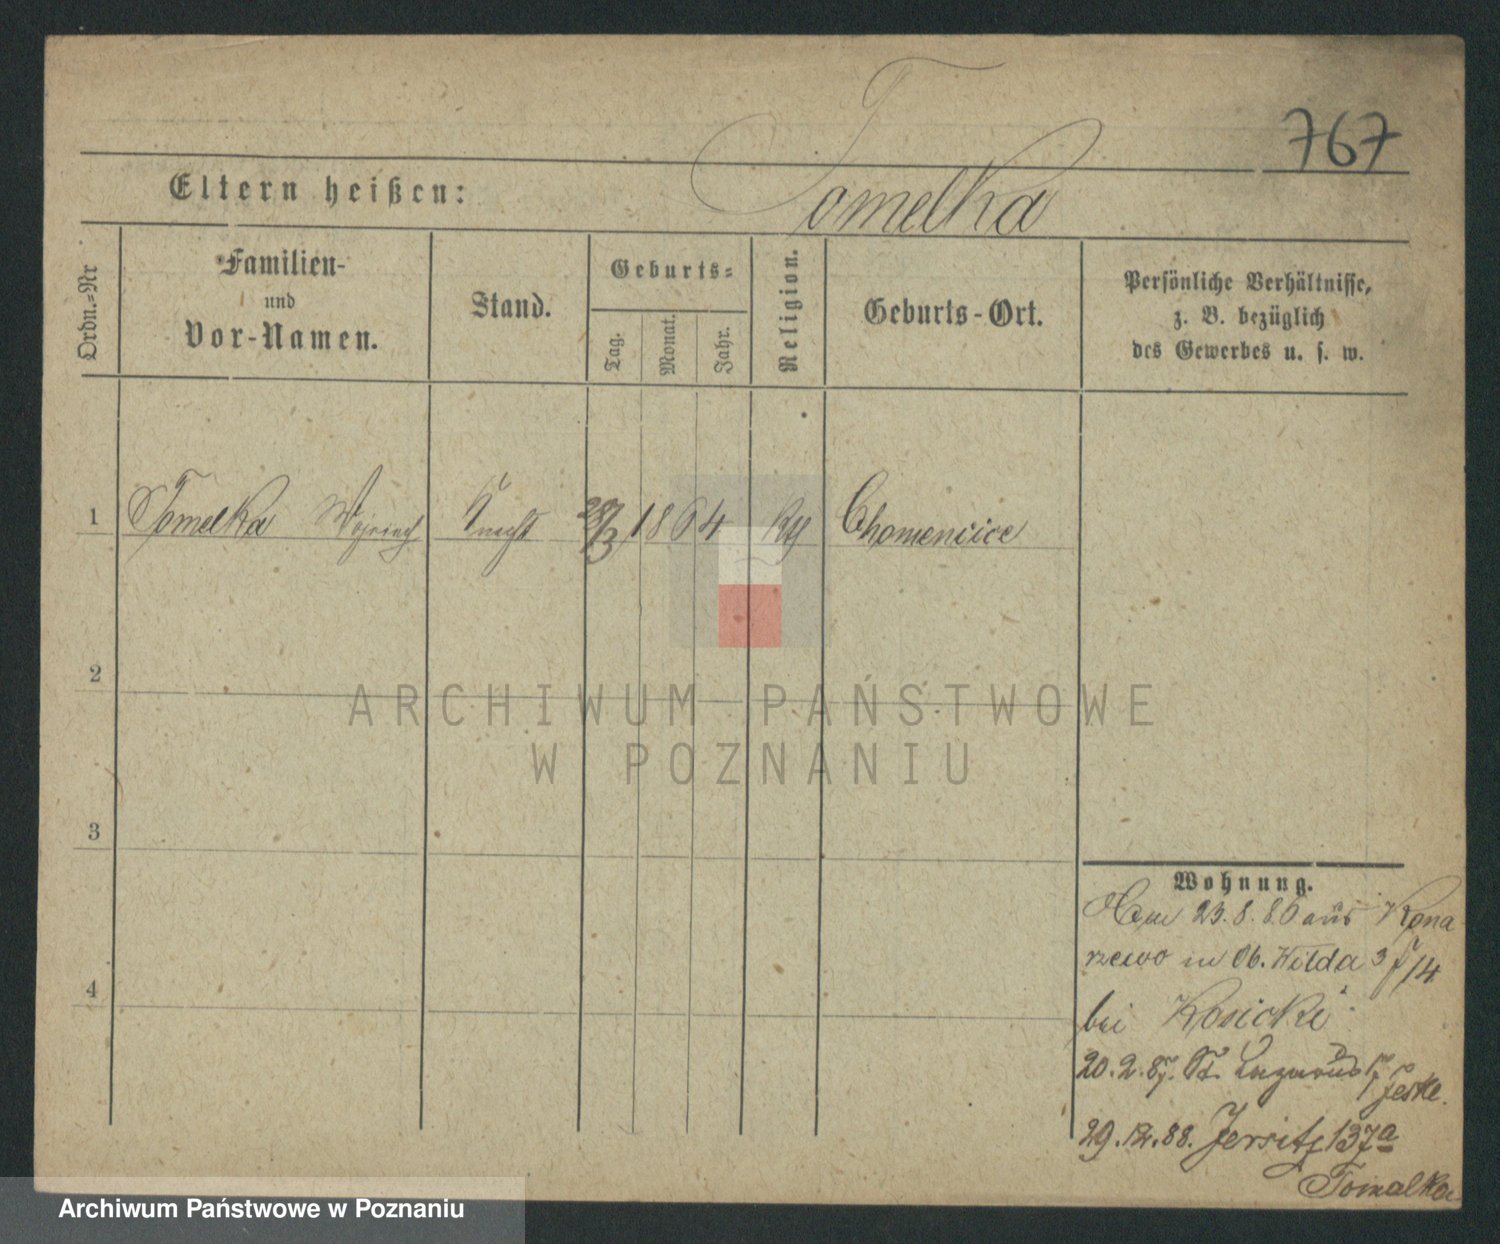 767
Eltern heißen:
Tomelka
Ordn.-Nr
Familien-
und
Vor-Namen.
Stand.
Geburts-
Tag.
Monat.
Jahr.
Religion.
Geburts-Ort.
Persönliche Verhältnisse,
z. B. bezüglich
des Gewerbes u. s. w.
1 Tomelka Knecht 28/3 1864 Chomencice
2
3
4
Wohnung.
23.8.86 aus Kona
rzewo in Ob. Wilda 3 /14
bei Kosicki
20.2.87. St. Lazarus Jeske.
29.12.88. Jersitz 137a
Tomalka
ARCHIWUM PAŃSTWOWE
W POZNANIU
Archiwum Państwowe w Poznaniu